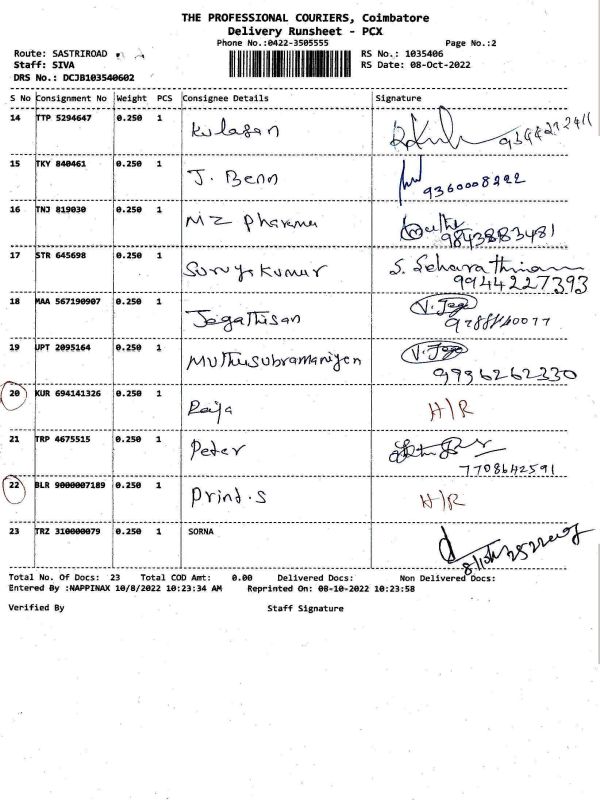 THE PROFESSIONAL COURIERS, Coimbatore
Delivery Runsheet - PCX
Phone No.:0422-3505555 Page No.:2
Route: SASTRIROAD RS No.: 1035406
Staff: SIVA RS Date: 08-Oct-2022
DRS No.: DCJB103540602
S No Consignment No Weight PCS Consignee Details Signature
14 TTP 5294647 0.250 1 Kulasan
15 TKY 840461 0.250 1 J. Benn 9360008222
16 TNJ 819030 0.250 1 MZ Pharma 9843883481
17 STR 645698 0.250 1 Suryo Kumar S. Seharathinam
9944227393
18 MAA 567190907 0.250 1 Jegathisan V. Jega
19 UPT 2095164 0.250 1 Muthusubramaniyen V. Jega
9996262330
20 KUR 694141326 0.250 1 Raja H/R
21 TRP 4675515 0.250 1 Peter
7708642591
22 BLR 9000007189 0.250 1 Print.s H/R
23 TRZ 310000079 0.250 1 SORNA
Total No. Of Docs: 23 Total COD Amt: 0.00 Delivered Docs: Non Delivered Docs:
Entered By :NAPPINAX 10/8/2022 10:23:34 AM Reprinted On: 08-10-2022 10:23:58
Verified By Staff Signature